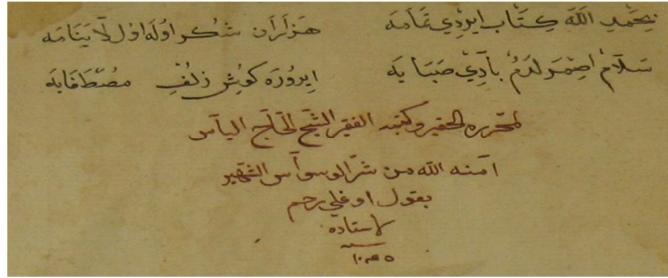 بحمد الله كتاب ايردي تمامه هزاران شكر اوله اول لاينامه
سلام اصمرلدم بادي صبايه ايروره كوش زلف مصطفايه
لمحرره الحقير وكتبه الفقير الشيخ الحاج الياس
آمنه الله من شر الوسواس
بقول اوغلي رحم
لاستاده